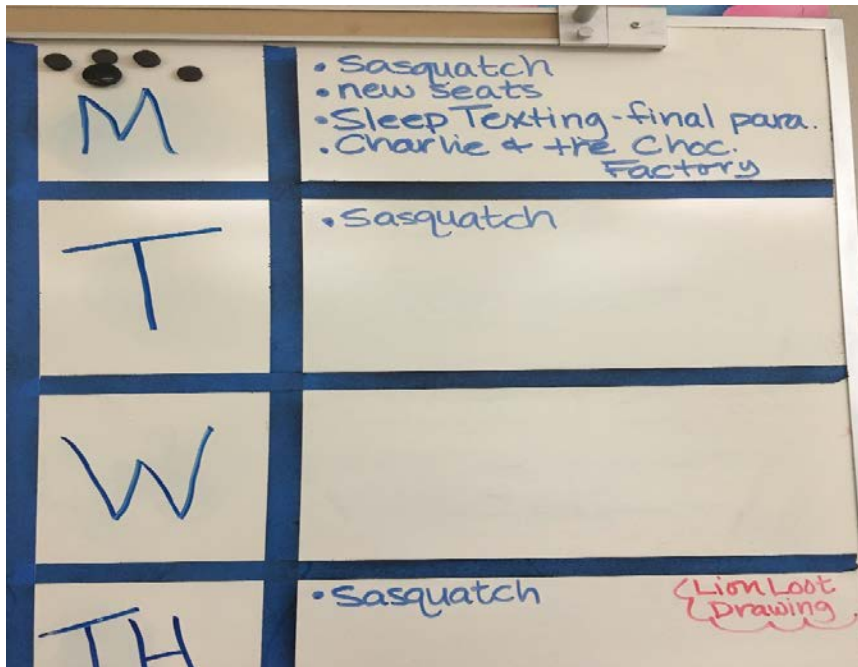 M
• Sasquatch
• new seats
• Sleep Texting - final para.
• Charlie & the Choc.
Factory
T
• Sasquatch
W
TH
• Sasquatch
Lion Loot
Drawing